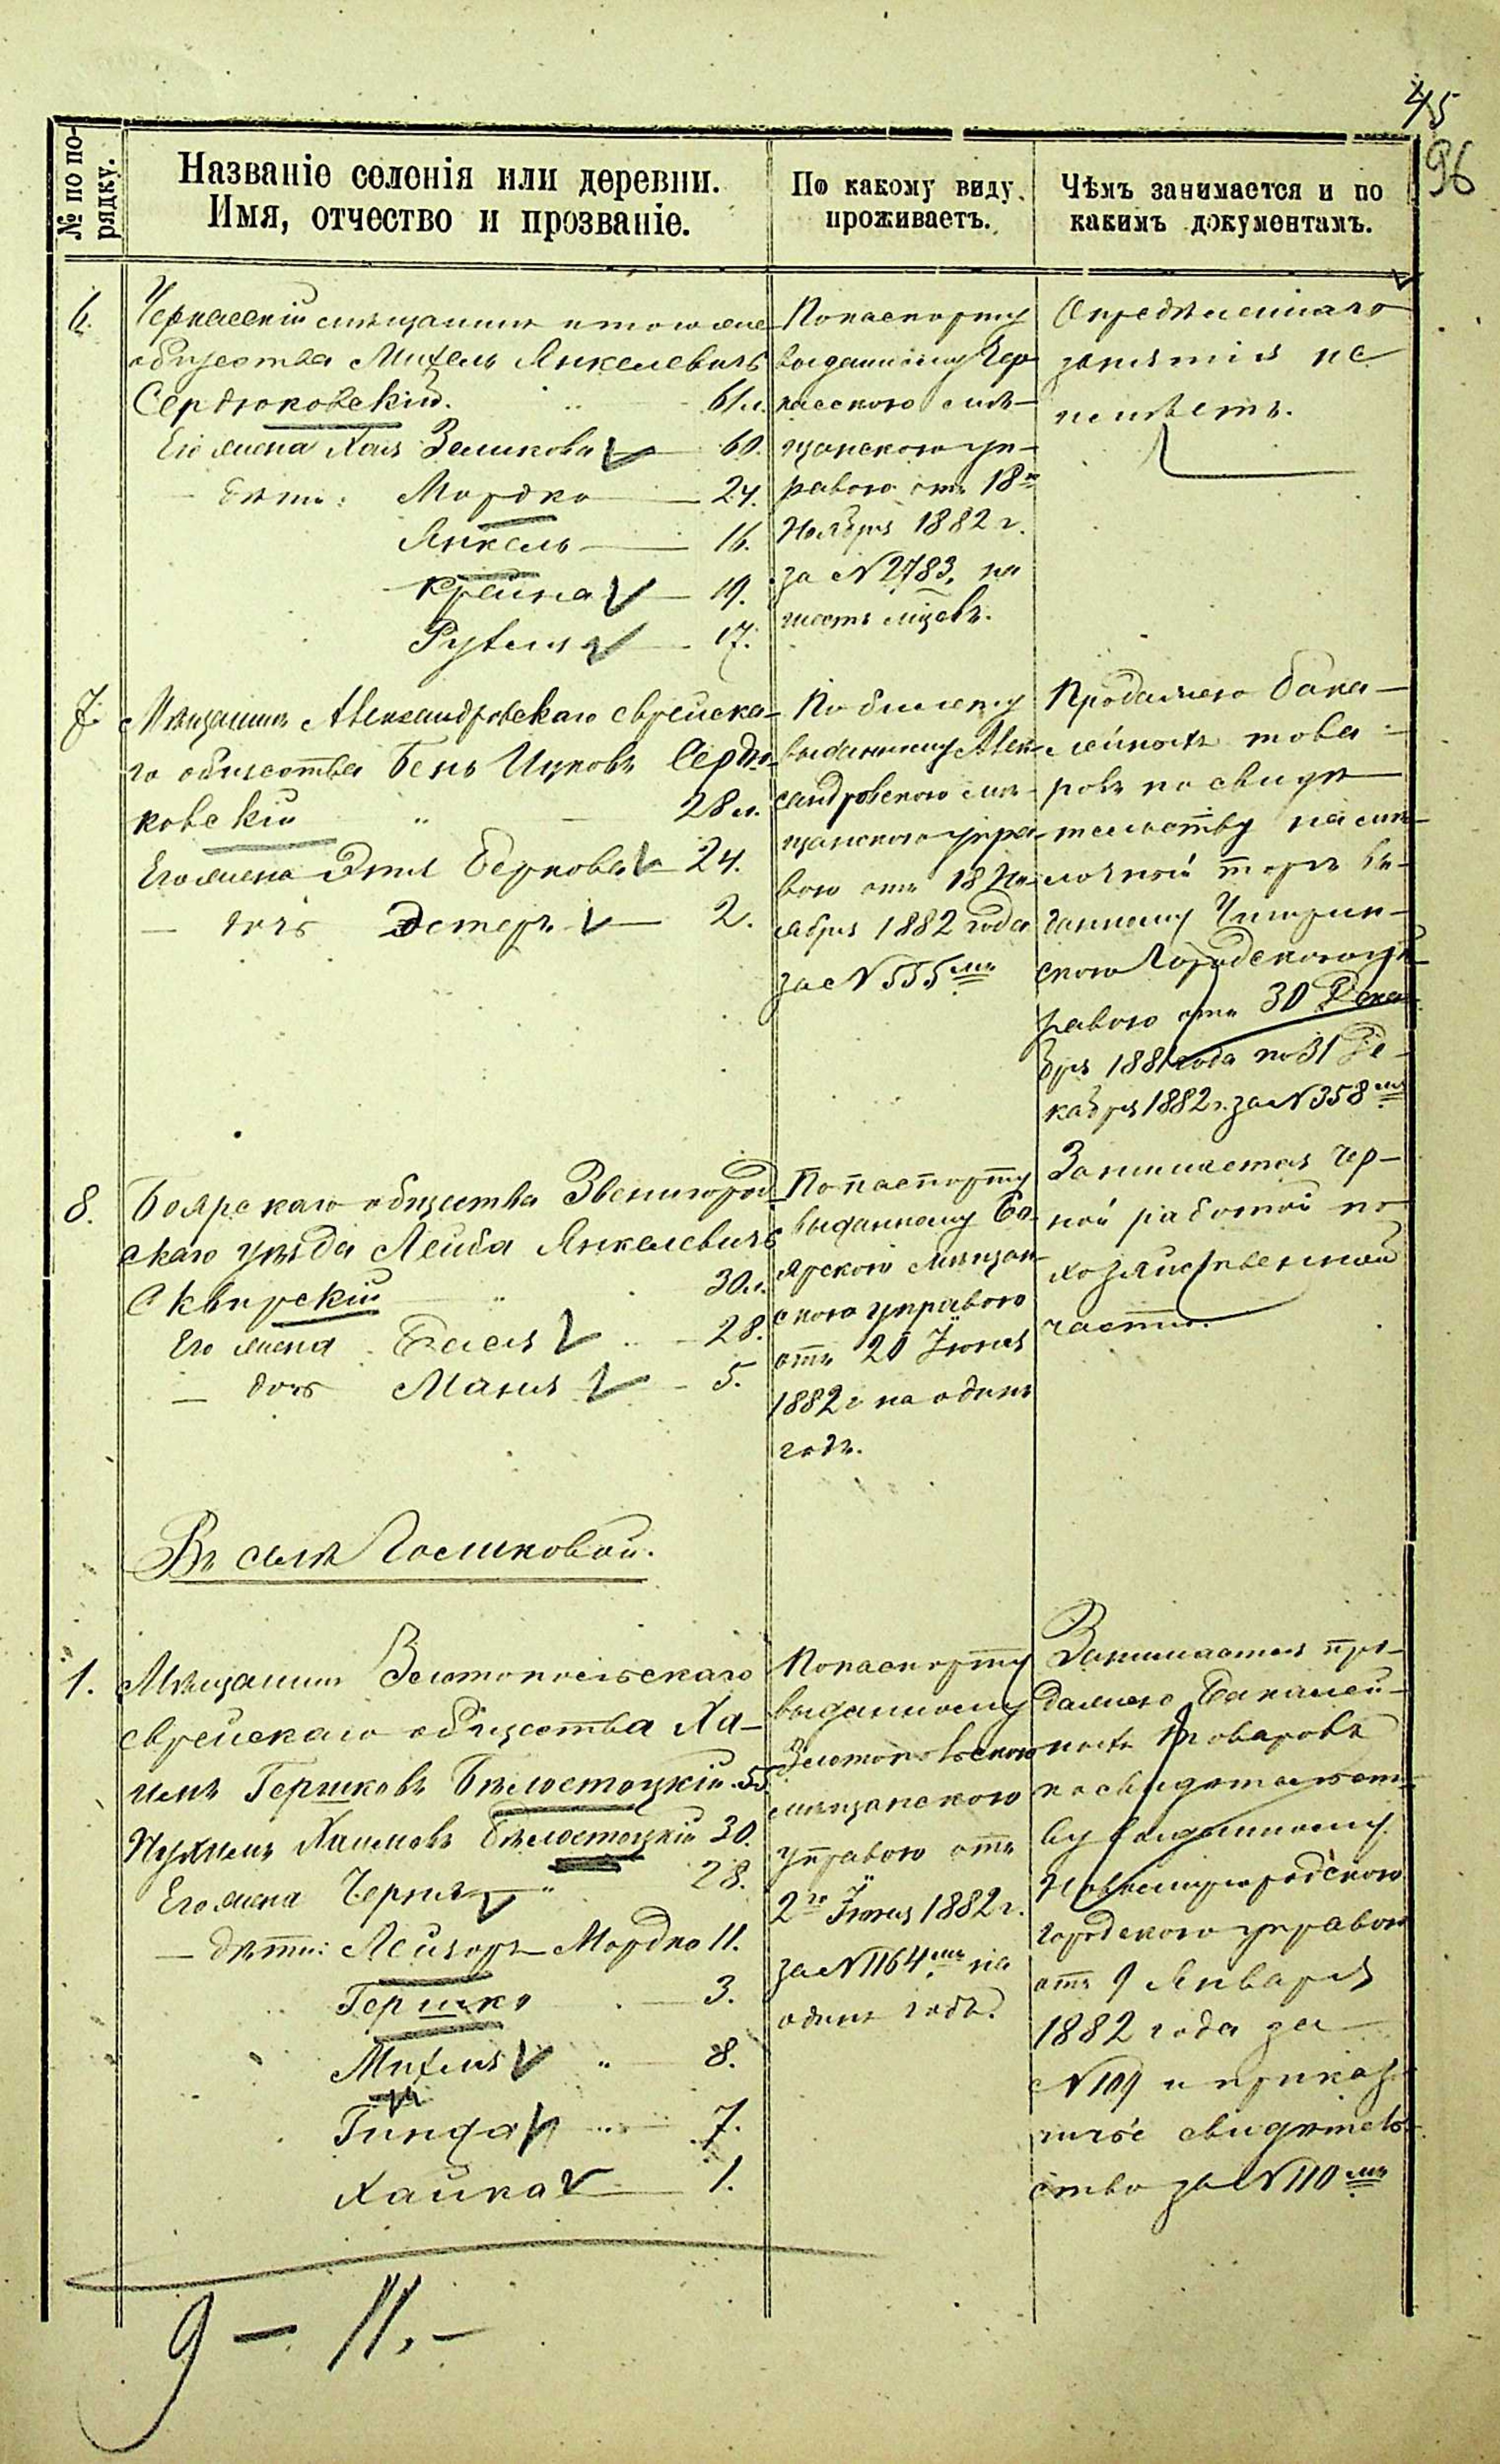 45
96
№ по по-
рядку.
Названіе селенія или деревни.
Имя, отчество и прозваніе.
По какому виду
проживаетъ.
Чѣмъ занимается и по
какимъ документамъ.
6.
Черкасскій мѣщанинъ и того же
общества Михель Янкелевичъ
Сердюковскій. 61 л.
Его жена Хая Зельикова 60.
— дѣти: Мордко — 24.
Янкель — 16.
Крейна — 19.
Рухля — 17.
По паспорту
выданному Чер-
касскою мѣ-
щанскою уп-
равою отъ 18го
Ноября 1882 г.
за № 2783, на
шесть мѣсяцевъ.
Опредѣленнаго
занятія не
имѣетъ.
7.
Мѣщанинъ Александровскаго еврейска-
го общества Бень Ицковъ Сердю-
ковскій " — 28 л.
Его жена Этля Беркова — 24.
— дочь Эстеръ — 2.
По билету
выданному Алек-
сандровскою мѣ-
щанскою упра-
вою отъ 18 Но-
ября 1882 года
за № 555мъ
Продажею бака-
лейныхъ това-
ровъ по свидѣ-
тельству на мѣ-
лочной торгъ вы-
данному Чигирин-
скою Городскою уп-
равою отъ 30 Дека-
бря 1881 года по 31 Де-
кабря 1882 г. за № 358мъ
8.
Боярскаго общества Звенигород-
скаго уѣзда Лейба Янкелевичъ
Сквирскій — " — 30 л.
Его жена Бася — 28.
— дочь Маня — 5.
По паспорту
выданному Бо-
ярскою мѣщан-
скою управою
отъ 20 Іюня
1882 г на одинъ
годъ.
Занимается чер-
ной работой по
хозяйственной
части.
Въ селѣ Голиковой.
1.
Мѣщанинъ Златопольскаго
еврейскаго общества Ха-
имъ Гершковъ Бѣлостоцкій. 55
Нухимъ Хаимовъ Бѣлостоцкій 30.
Его жена Черня " 28.
— дѣти: Лейзоръ-Мордко 11.
Гершко — 3.
Михля " — 8.
Гинда " — 7.
Хайка — 1.
По паспорту
выданному
Златопольскою
мѣщанскою
управою отъ
2го Іюня 1882 г.
за № 1164мъ на
одинъ годъ.
Занимается про-
дажею бакалей-
ныхъ товаровъ
по свидѣтельст-
ву выданному
Новомиргородскою
городскою управою
отъ 9 Января
1882 года за
№ 109 и приказ-
чичье свидѣтель-
ство за № 110мъ
9 — 11. —